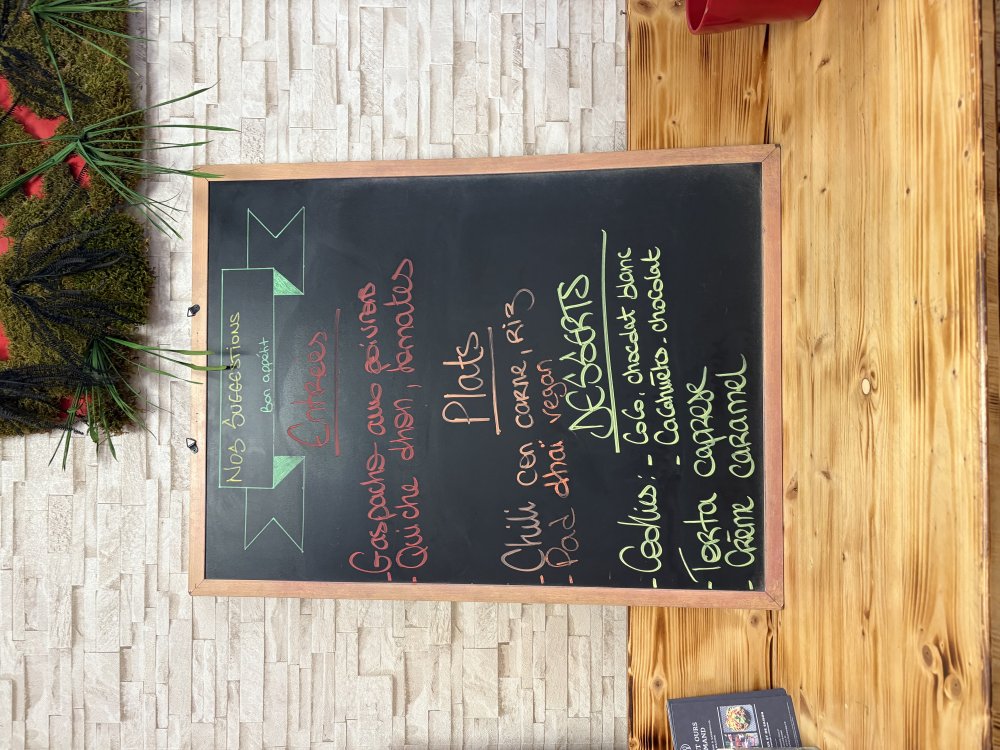 NOS SUGGESTIONS
Bon appétit
Entrées
- Gaspacho aux poivrons
- Quiche thon, tomates
Plats
- Chili con carne, riz
- Pad thaï vegan
DESSERTS
- Cookies : - Coco, chocolat blanc
- Cacahuète - chocolat
- Torta caprese
- Crème caramel